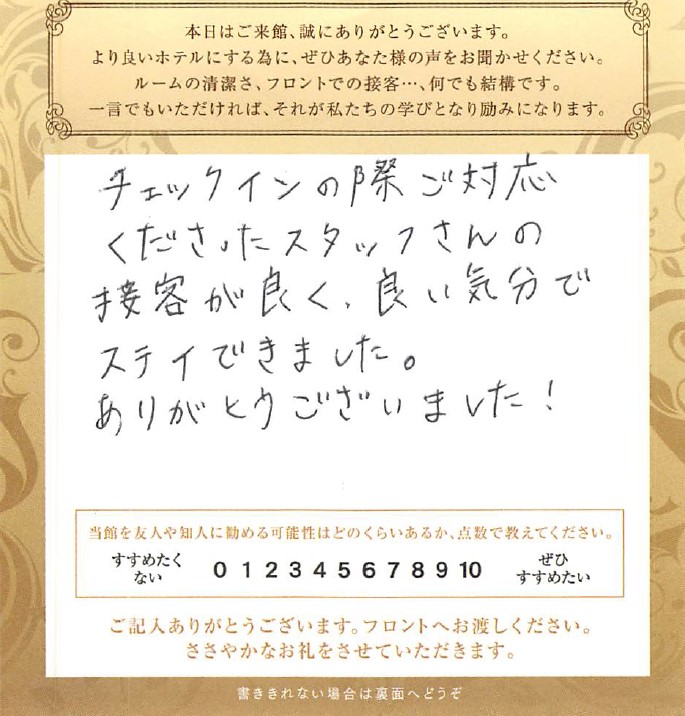 本日はご来館、誠にありがとうございます。
より良いホテルにする為に、ぜひあなた様の声をお聞かせください。
ルームの清潔さ、フロントでの接客…、何でも結構です。
一言でもいただければ、それが私たちの学びとなり励みになります。
チェックインの際ご対応
くださったスタッフさんの
接客が良く、良い気分で
ステイできました。
ありがとうございました!
当館を友人や知人に勧める可能性はどのくらいあるか、点数で教えてください。
すすめたく
ない
0 1 2 3 4 5 6 7 8 9 10
ぜひ
すすめたい
ご記入ありがとうございます。フロントへお渡しください。
ささやかなお礼をさせていただきます。
書ききれない場合は裏面へどうぞ